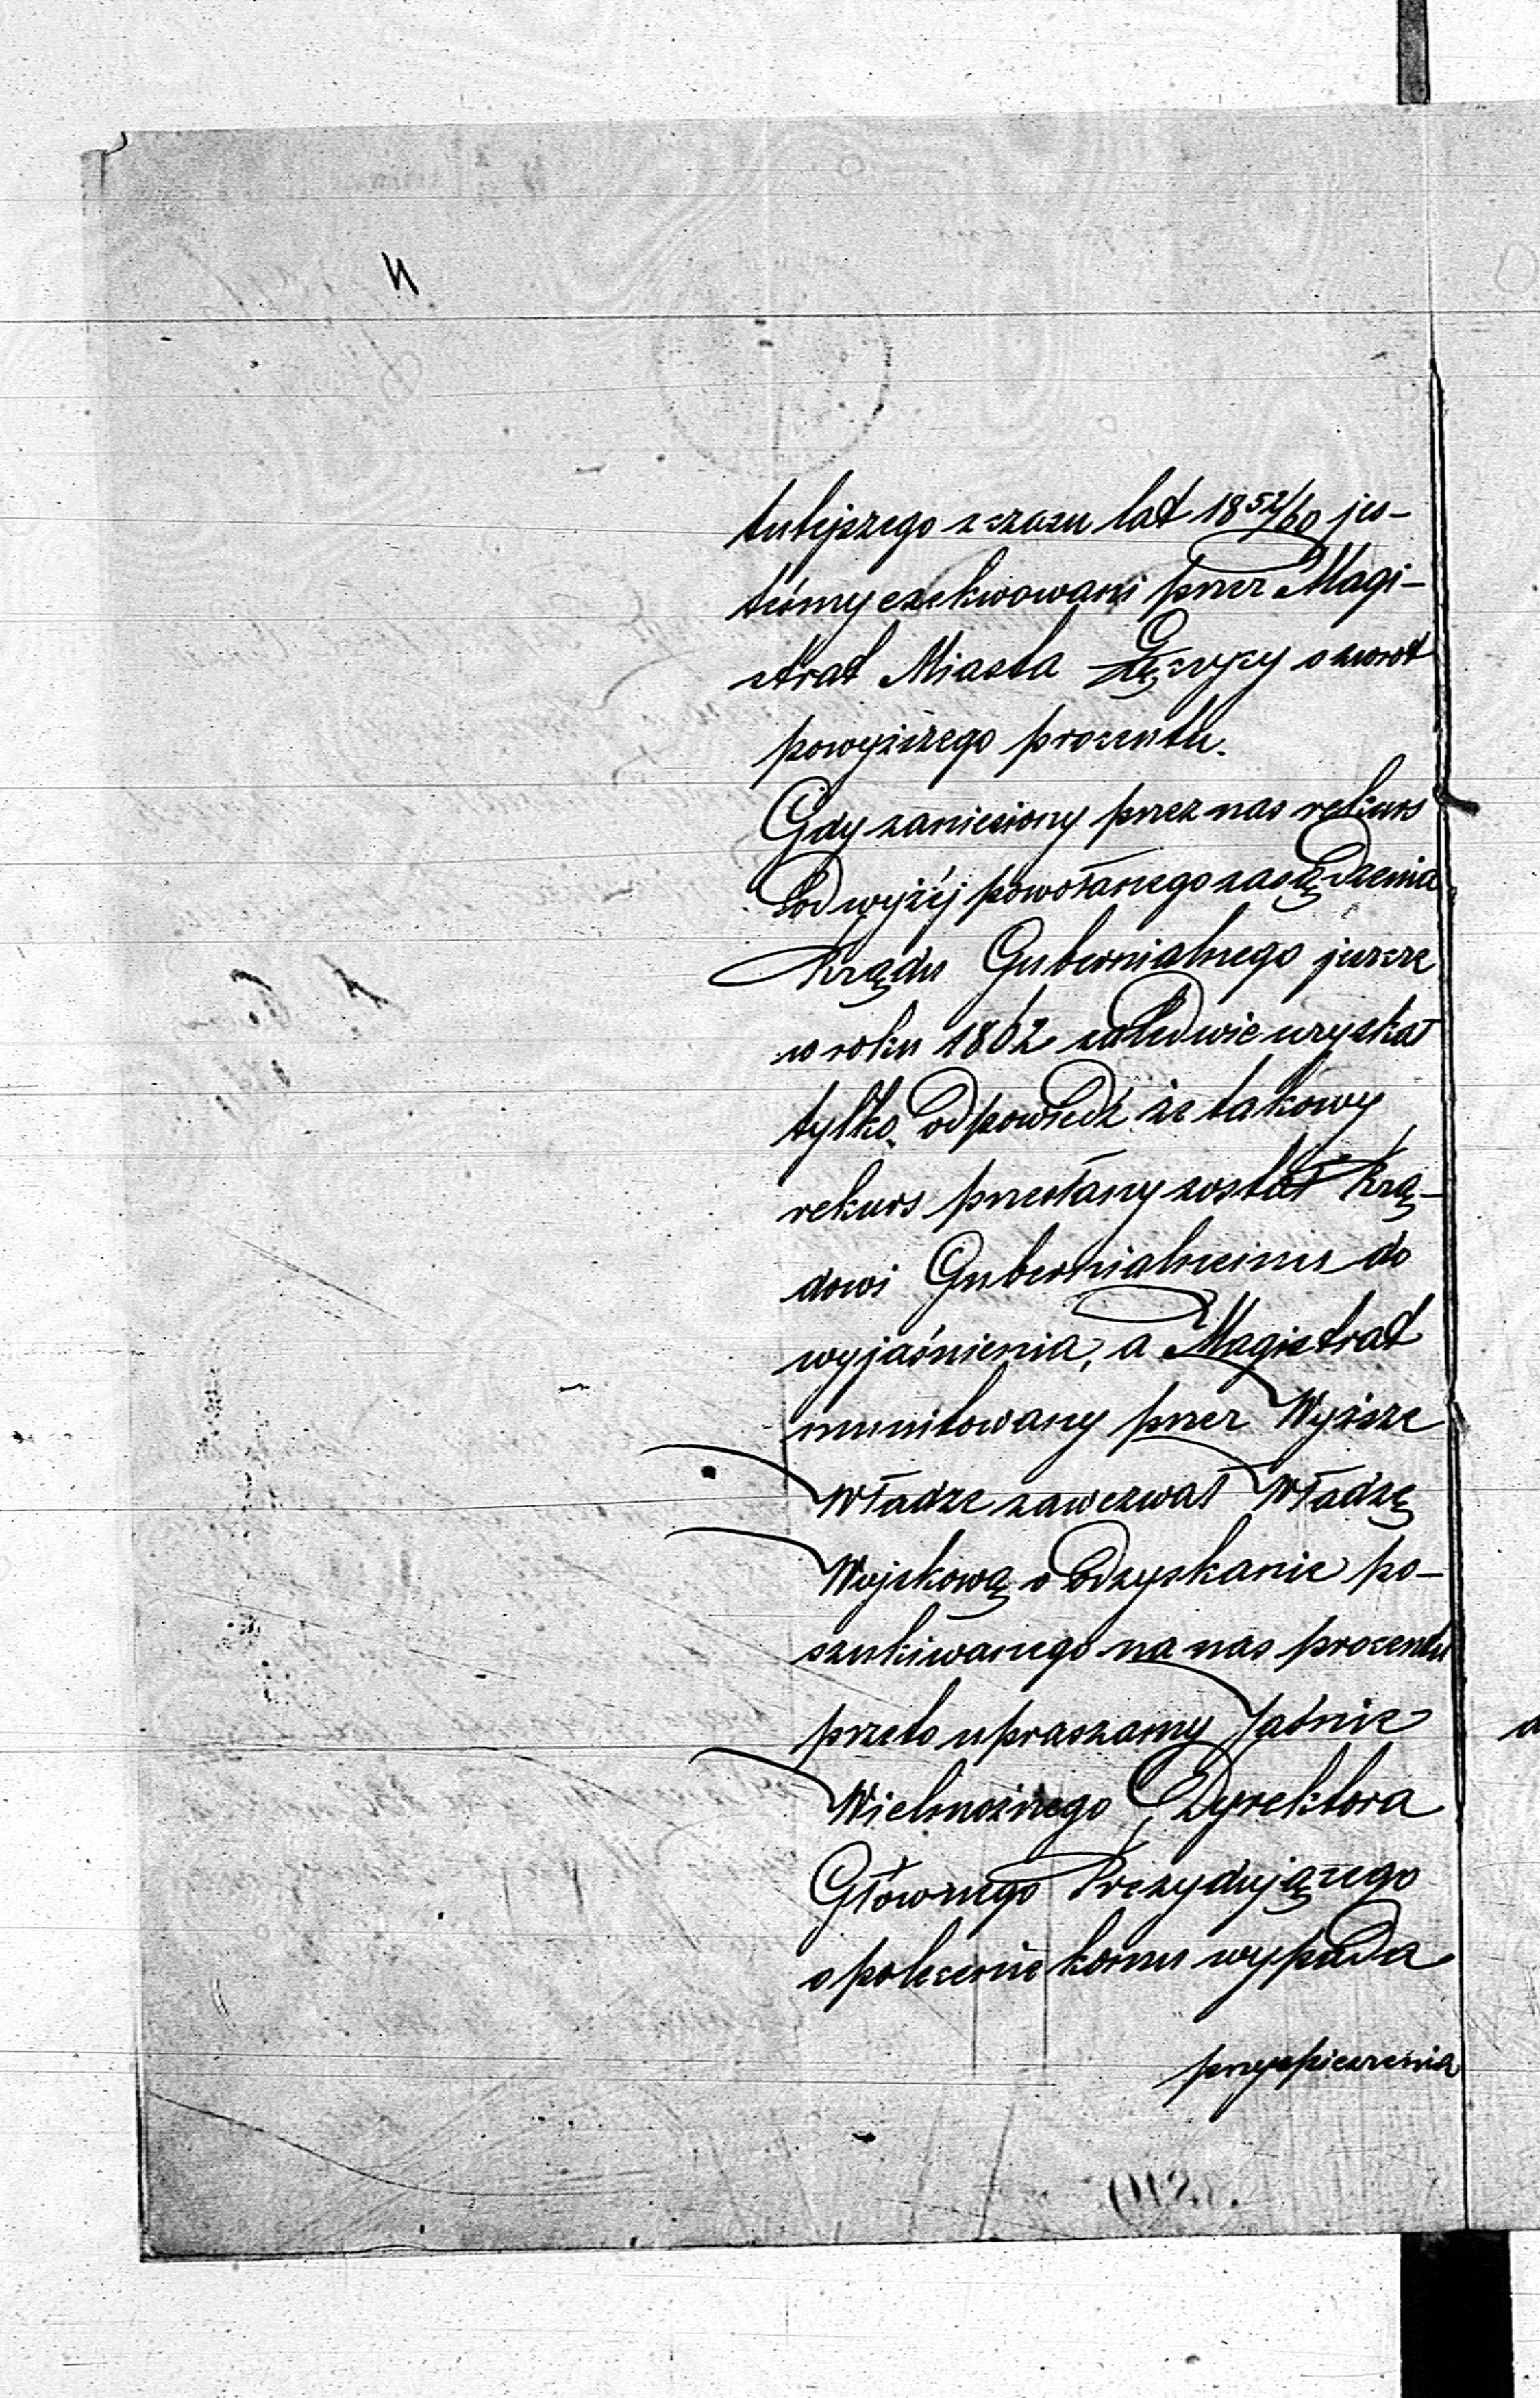 tutejszego z czasu lat 1852/60 jes-
teśmy exekwowani przez Magi-
strat Miasta Łęczycy o zwrot
powyższego procentu.
Gdy zaniesiony przez nas rekurs
od wyżej powołanego zasądzenia
Rządu Gubernialnego jeszcze
w roku 1862 zaledwie uzyskał
tylko odpowiedź że takowy
rekurs przesłany został Rzą-
dowi Gubernialnemu do
wyjaśnienia, a Magistrat
monitowany przez Wyższe
Władze zawezwał Władzę
Wojskową o odzyskanie po-
szukiwanego na nas procentu
przeto upraszamy Jaśnie
Wielmożnego Dyrektora
Głównego Prezydującego
o polecenie komu wypada
przyspieszenia